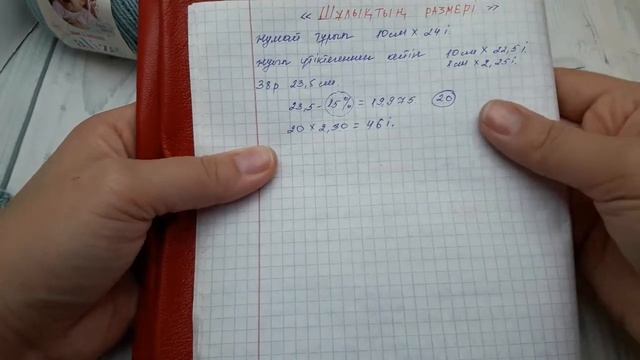 « Шұлықтың размері »
10см × 24 і.
жуып үтіктегеннен кейін 10см × 22,5 і.
1см × 2,25 і.
38р 23,5 см.
23,5 - 15% = 19975 20
20 × 2,30 = 46 і.